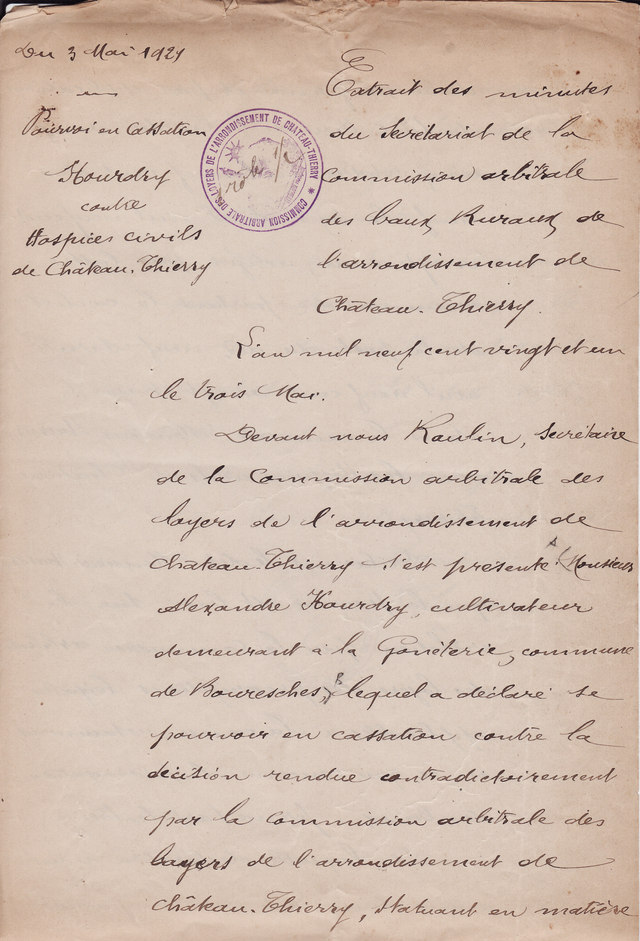 Du 3 Mai 1921
Pourvoi en Cassation
Hourdry
contre
Hospices civils
de Château-Thierry
COMMISSION ARBITRALE DES LOYERS DE L'ARRONDISSEMENT DE CHÂTEAU-THIERRY
Extrait des minutes
du Secrétariat de la
Commission arbitrale
des baux Ruraux de
l'arrondissement de
Château-Thierry.
L'an mil neuf cent vingt et un
le trois Mai.
Devant nous Raulin, Secrétaire
de la Commission arbitrale des
loyers de l'arrondissement de
Château-Thierry s'est présenté A (Monsieur
Alexandre Hourdry, cultivateur
demeurant à la Gonéterie, commune
de Bouresches,) B lequel a déclaré se
pourvoir en cassation contre la
décision rendue contradictoirement
par la commission arbitrale des
loyers de l'arrondissement de
Château-Thierry, statuant en matière